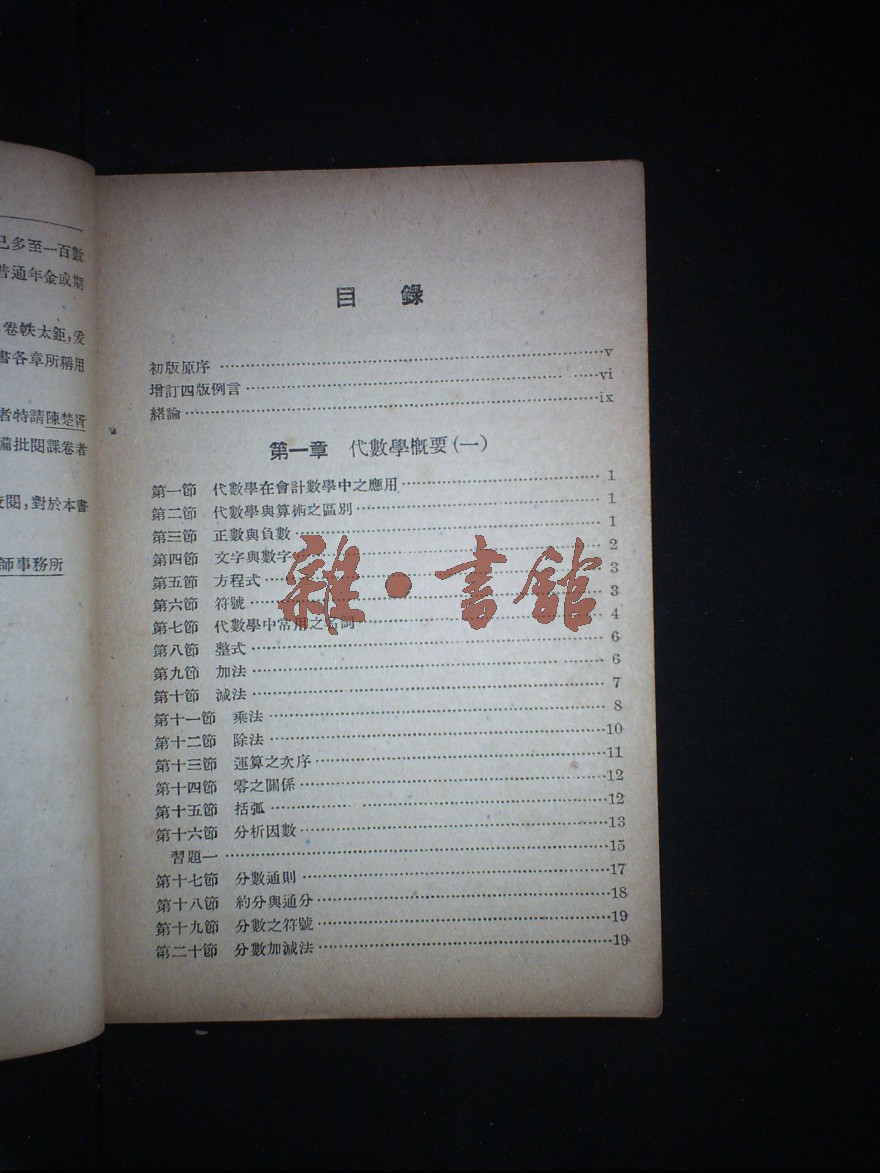 已多至一百數
普通年金或期
卷帙太鉅,爰
書各章所稱用
者特請陳楚胥
備批閱課卷者
閱,對於本書
師事務所
目 錄
初版原序……v
增訂四版例言……vi
緒論……ix
第一章 代數學概要(一)
第一節 代數學在會計數學中之應用……1
第二節 代數學與算術之區別……1
第三節 正數與負數……1
第四節 文字與數字……2
第五節 方程式……3
第六節 符號……3
第七節 代數學中常用之名詞……4
第八節 整式……6
第九節 加法……6
第十節 減法……7
第十一節 乘法……8
第十二節 除法……10
第十三節 運算之次序……11
第十四節 零之關係……12
第十五節 括弧……12
第十六節 分析因數……13
習題一……15
第十七節 分數通則……17
第十八節 約分與通分……18
第十九節 分數之符號……19
第二十節 分數加減法……19
雜·書館